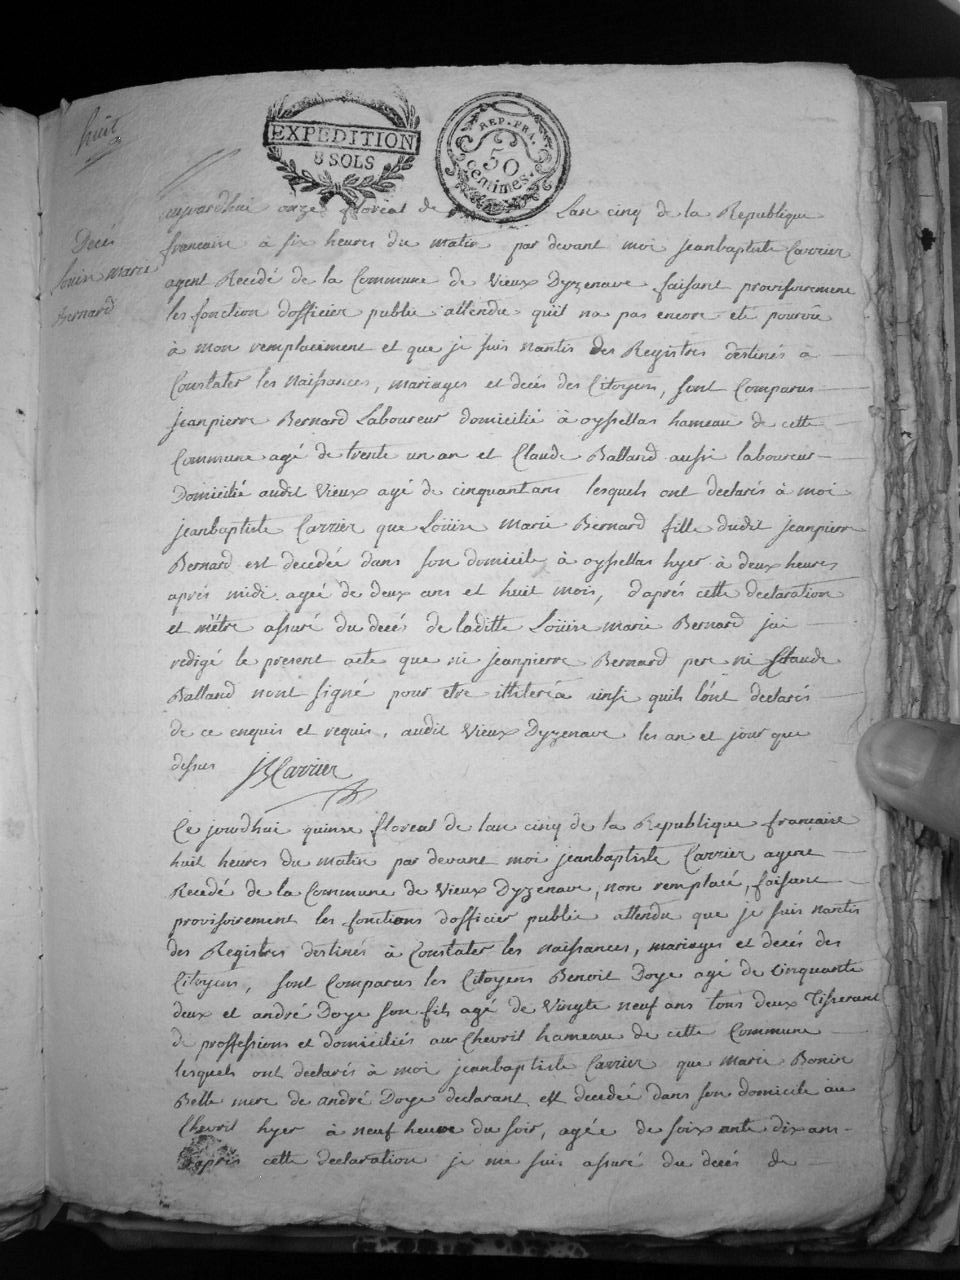 huit
EXPEDITION
8 SOLS
REP. FRA.
50
centimes.
Decés
Louise marie
Bernard
aujourdhui onze floreal de Lan cinq de la Republique
francaise à six heures du matin par devant moi jeanbaptiste Carrier
agent Recedé de la Commune de Vieux Dyzenave faisant provisoirement
les fonction dofficier public attendu quil na pas encore eté pourvû
à mon remplacement et que je suis nantis des Registres destinés à
Constater les naissances, mariages et decés des Citoyens, sont Comparus
jeanpierre Bernard Laboureur domicilié à oyssellas hameau de cette
Commune agé de trente un an et Claude Balland aussi laboureur
Domicilié audit Vieux agé de cinquant ans lesquels ont declarés à moi
jeanbaptiste Carrier que Loüise Marie Bernard fille dudit jeanpierre
Bernard est decedée dans son domicile à oyssellas hyer à deux heures
aprés midi agée de deux ans et huit mois, d'aprés cette declaration
et m'étre assuré du decé de laditte Loüise marie Bernard jai
redigé le present acte que ni jeanpierre Bernard pere ni Claude
Balland nont signé pour etre illiterés ainsi quils lont declarés
de ce enquis et requis, audit Vieux Dyzenave les an et jour que
dessus JBCarrier
Ce jourdhui quinse floreal de lan cinq de la Republique française
huit heures du matin par devant moi jeanbaptiste Carrier agent
Recedé de la Commune de Vieux Dyzenave, non remplacé, faisant
provisoirement les fonctions dofficier public attendu que je suis nantis
des Registres destinés à Constater les naissances, mariages et decés des
Citoyens, sont Comparus les Citoyens Benoit Doye agé de Cinquante
deux et andré Doye son fils agé de Vingte neuf ans tous deux Tisserant
de proffessions et domiciliés au Chevril hameau de cette Commune
lesquels ont declarés à moi jeanbaptiste Carrier que marie Bonin
Belle mere de andré Doye declarant est decedée dans son domicile au
Chevril hyer à neuf heure du soir, agée de soixante dix ans
daprés cette declaration je me suis assuré du decés de